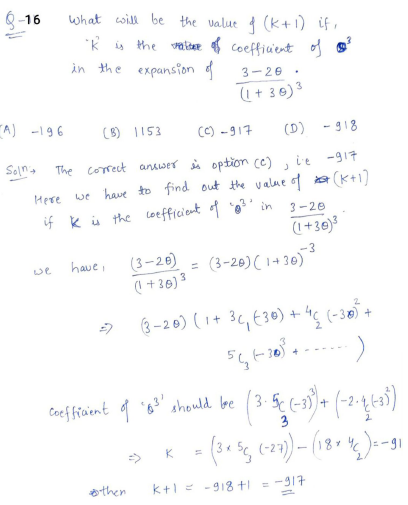 Q-16 What will be the value of (K+1) if,
'K' is the coefficient of θ³
in the expansion of (3-2θ)/(1+3θ)³.
(A) -196 (B) 1153 (C) -917 (D) -918
Soln→ The correct answer is option (c), i.e -917
Here we have to find out the value of (K+1)
if K is the coefficient of 'θ³' in (3-2θ)/(1+3θ)³.
we have, (3-2θ)/(1+3θ)³ = (3-2θ)(1+3θ)⁻³
⇒ (3-2θ)(1+3C₁(-3θ)+4C₂(-3θ)²+
5C₃(-3θ)³+------)
Coefficient of 'θ³' should be (3·5C₃(-3)³)+(-2·4C₂(-3)²)
⇒ K = (3×5C₃(-27))-(18×4C₂)=-91
then K+1 = -918+1 = -917